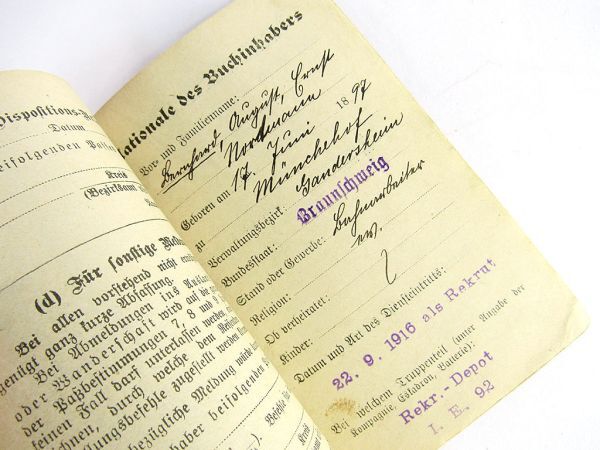 Dispositions-
Datum
beifolgenden
Kreis
(Bezirksamt
(d) Für sonstige
Bei allen vorstehend nicht
genügt ganz kurze Abfassung.
Bei Abmeldungen ins
oder Wanderschaft wird auf die
Paßbestimmungen 7, 8 und 9
keinen Fall darf unterlassen werden
durch welche dem
zugestellt werden
bezügliche Meldung
beifolgenden
Kreis
Nationale des Buchinhabers
Vor- und Familienname:
Bernhard, August, Ernst
Nordmann
Geboren am 17. Juni 1897
zu Münchehof
Verwaltungsbezirk: Gandersheim
Bundesstaat: Braunschweig
Stand oder Gewerbe: Bahnarbeiter
Religion: ev.
Ob verheiratet:
Kinder:
Datum und Art des Diensteintritts:
22. 9. 1916 als Rekrut
Bei welchem Truppenteil (unter Angabe der
Kompagnie, Eskadron, Batterie):
Rekr.-Depot
I. E. 92